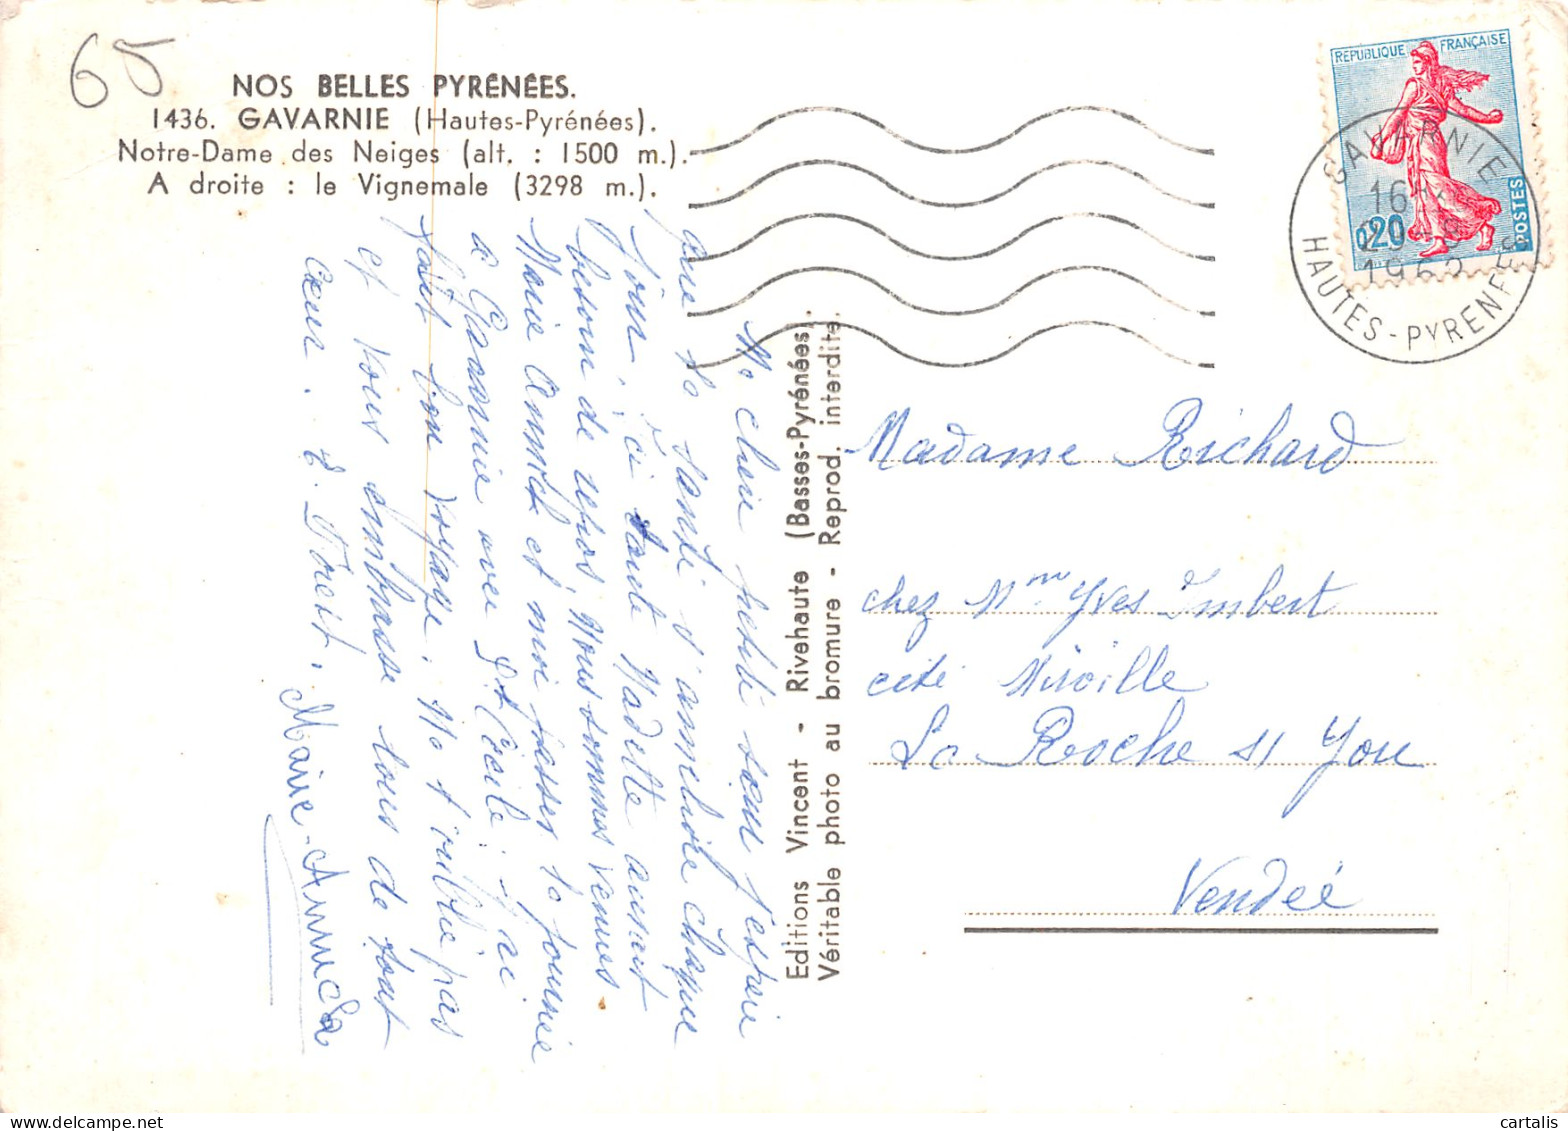 65
NOS BELLES PYRÉNÉES.
1436. GAVARNIE (Hautes-Pyrénées).
Notre-Dame des Neiges (alt. : 1500 m.).
A droite : le Vignemale (3298 m.).
REPUBLIQUE FRANÇAISE
0,20
POSTES
GAVARNIE
16
1962
HAUTES-PYRENEES
Ma chère petite sœur j'espère
que ta santé s'améliore chaque
jour. Ici tante Nadette aurait
besoin de repos. Nous sommes venues
Marie Annick et moi passer la journée
à Gavarnie avec Ste Cécile. J'ai
fait bon voyage. Ne t'oublie pas
et vous embrasse tous de tout
cœur.
Marie-Annick
Editions Vincent - Rivehaute (Basses-Pyrénées).
Véritable photo au bromure - Reprod. interdite.
Madame Richard
chez Mme Yves Imbert
cité Miville
La Roche s/ Yon
Vendée
cartalis